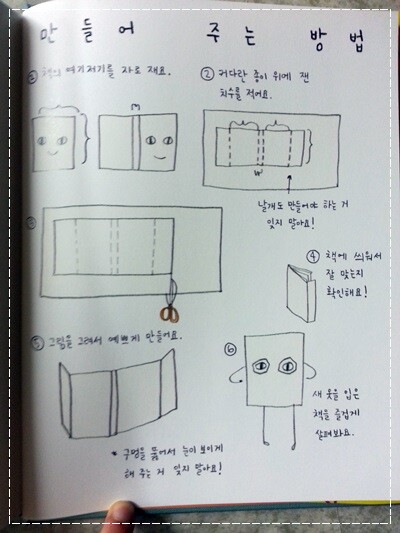 만들어 주는 방법
① 책의 여기저기를 자로 재요.
② 커다란 종이 위에 잰
치수를 적어요.
날개도 만들어야 하는 거
잊지 말아요!
③
④ 책에 씌워서
잘 맞는지
확인해요!
⑤ 그림을 그려서 예쁘게 만들어요.
* 구멍을 뚫어서 눈이 보이게
해 주는 거 잊지 말아요!
⑥
새 옷을 입은
책을 즐겁게
살펴봐요.